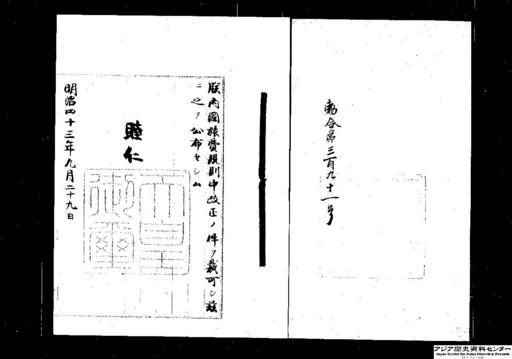 勅令第三百九十一号
朕内国旅費規則中改正ノ件ヲ裁可シ茲
ニ之ヲ公布セシム
睦仁
天皇御璽
明治四十三年九月二十九日
アジア歴史資料センター
Japan Center for Asian Historical Records